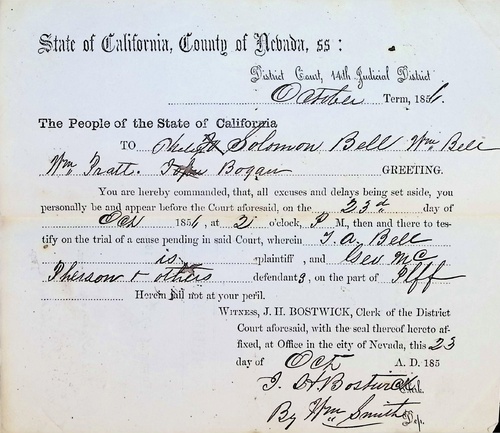 State of California, County of Nevada, ss:
District Court, 14th Judicial District
October Term, 1856.
The People of the State of California
TO Solomon Bell Wm Bell
Wm Pratt. John Bogan GREETING.
You are hereby commanded, that, all excuses and delays being set aside, you
personally be and appear before the Court aforesaid, on the 23d day of
Oct 1856, at 2 o'clock, P M, then and there to tes-
tify on the trial of a cause pending in said Court, wherein J. A. Bell
is plaintiff and Geo Mc
Pherson & others defendants, on the part of Plff
Herein fail not at your peril.
WITNESS, J. H. BOSTWICK, Clerk of the District
Court aforesaid, with the seal thereof hereto af-
fixed, at Office in the city of Nevada, this 23
day of Oct A. D. 185
J. H. Bostwick Clerk.
By Wm Smith Dep.